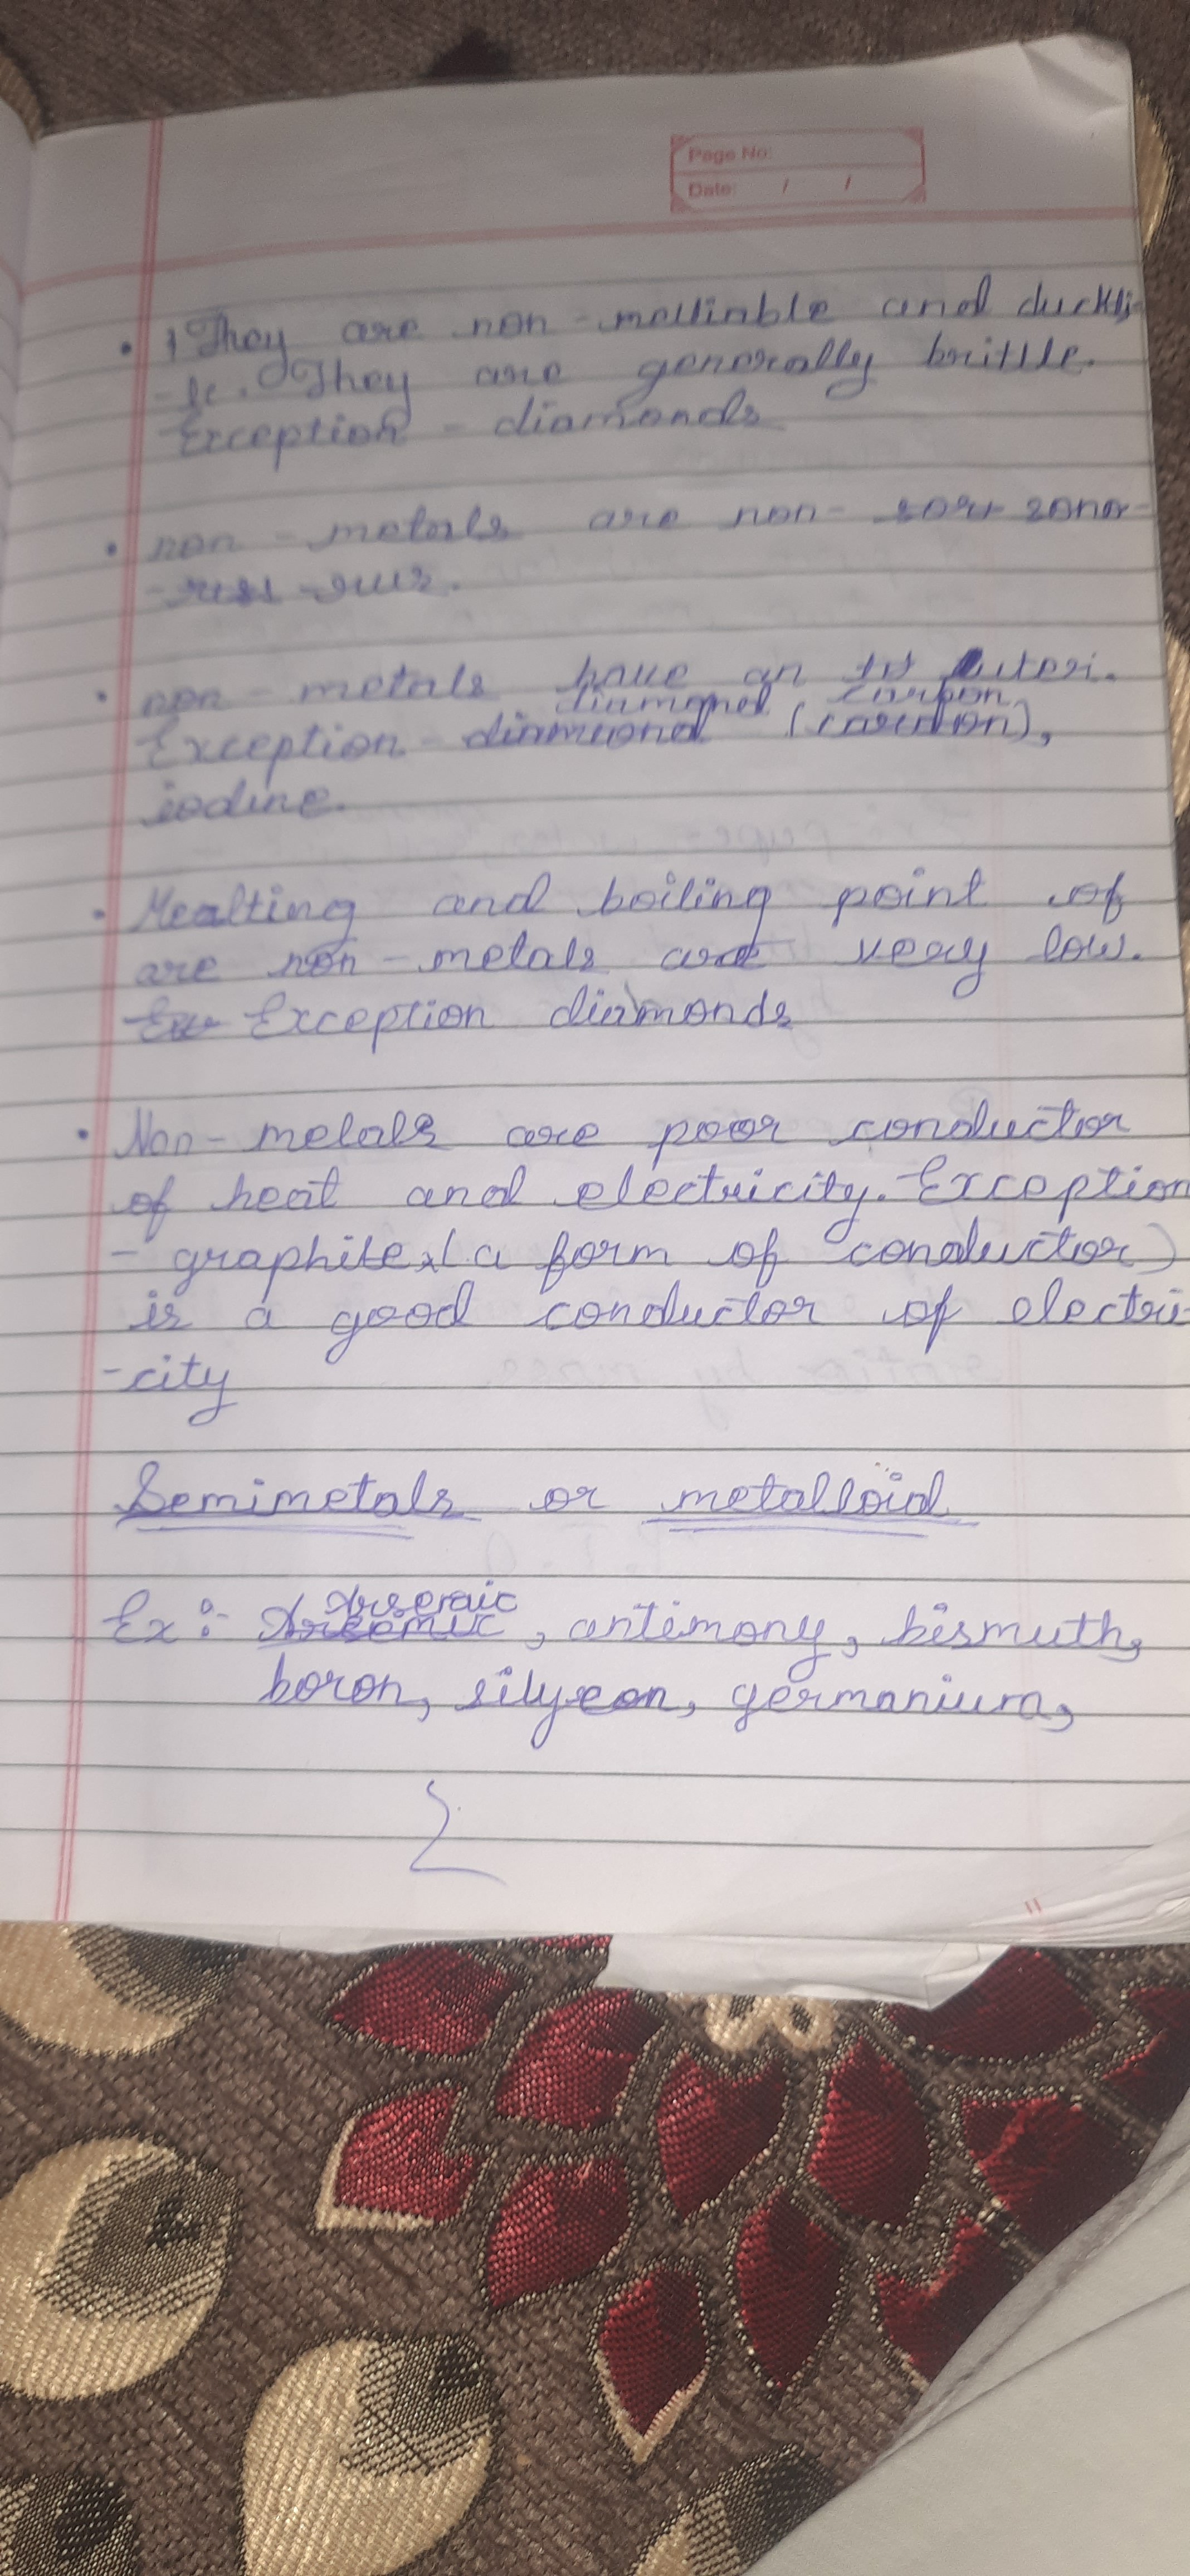 Page No:
Date: / /
They are non-mellinble and duckti
-le. They are generally brittle.
Exception - diamonds
non-metals are non- zonor
-sus.
non-metals have an luteri.
diamond carbon
Exception - diamond (carbon),
iodine.
Mealting and boiling point of
are non-metals are very low.
Exception diamonds
Non-metals are poor conductor
of heat and electricity. Exception
- graphite (a form of conductor)
is a good conductor of electri
-city
Semimetals or metalloid
Arseraic
Ex:- , antimony, bismuth,
boron, silycon, germanium,